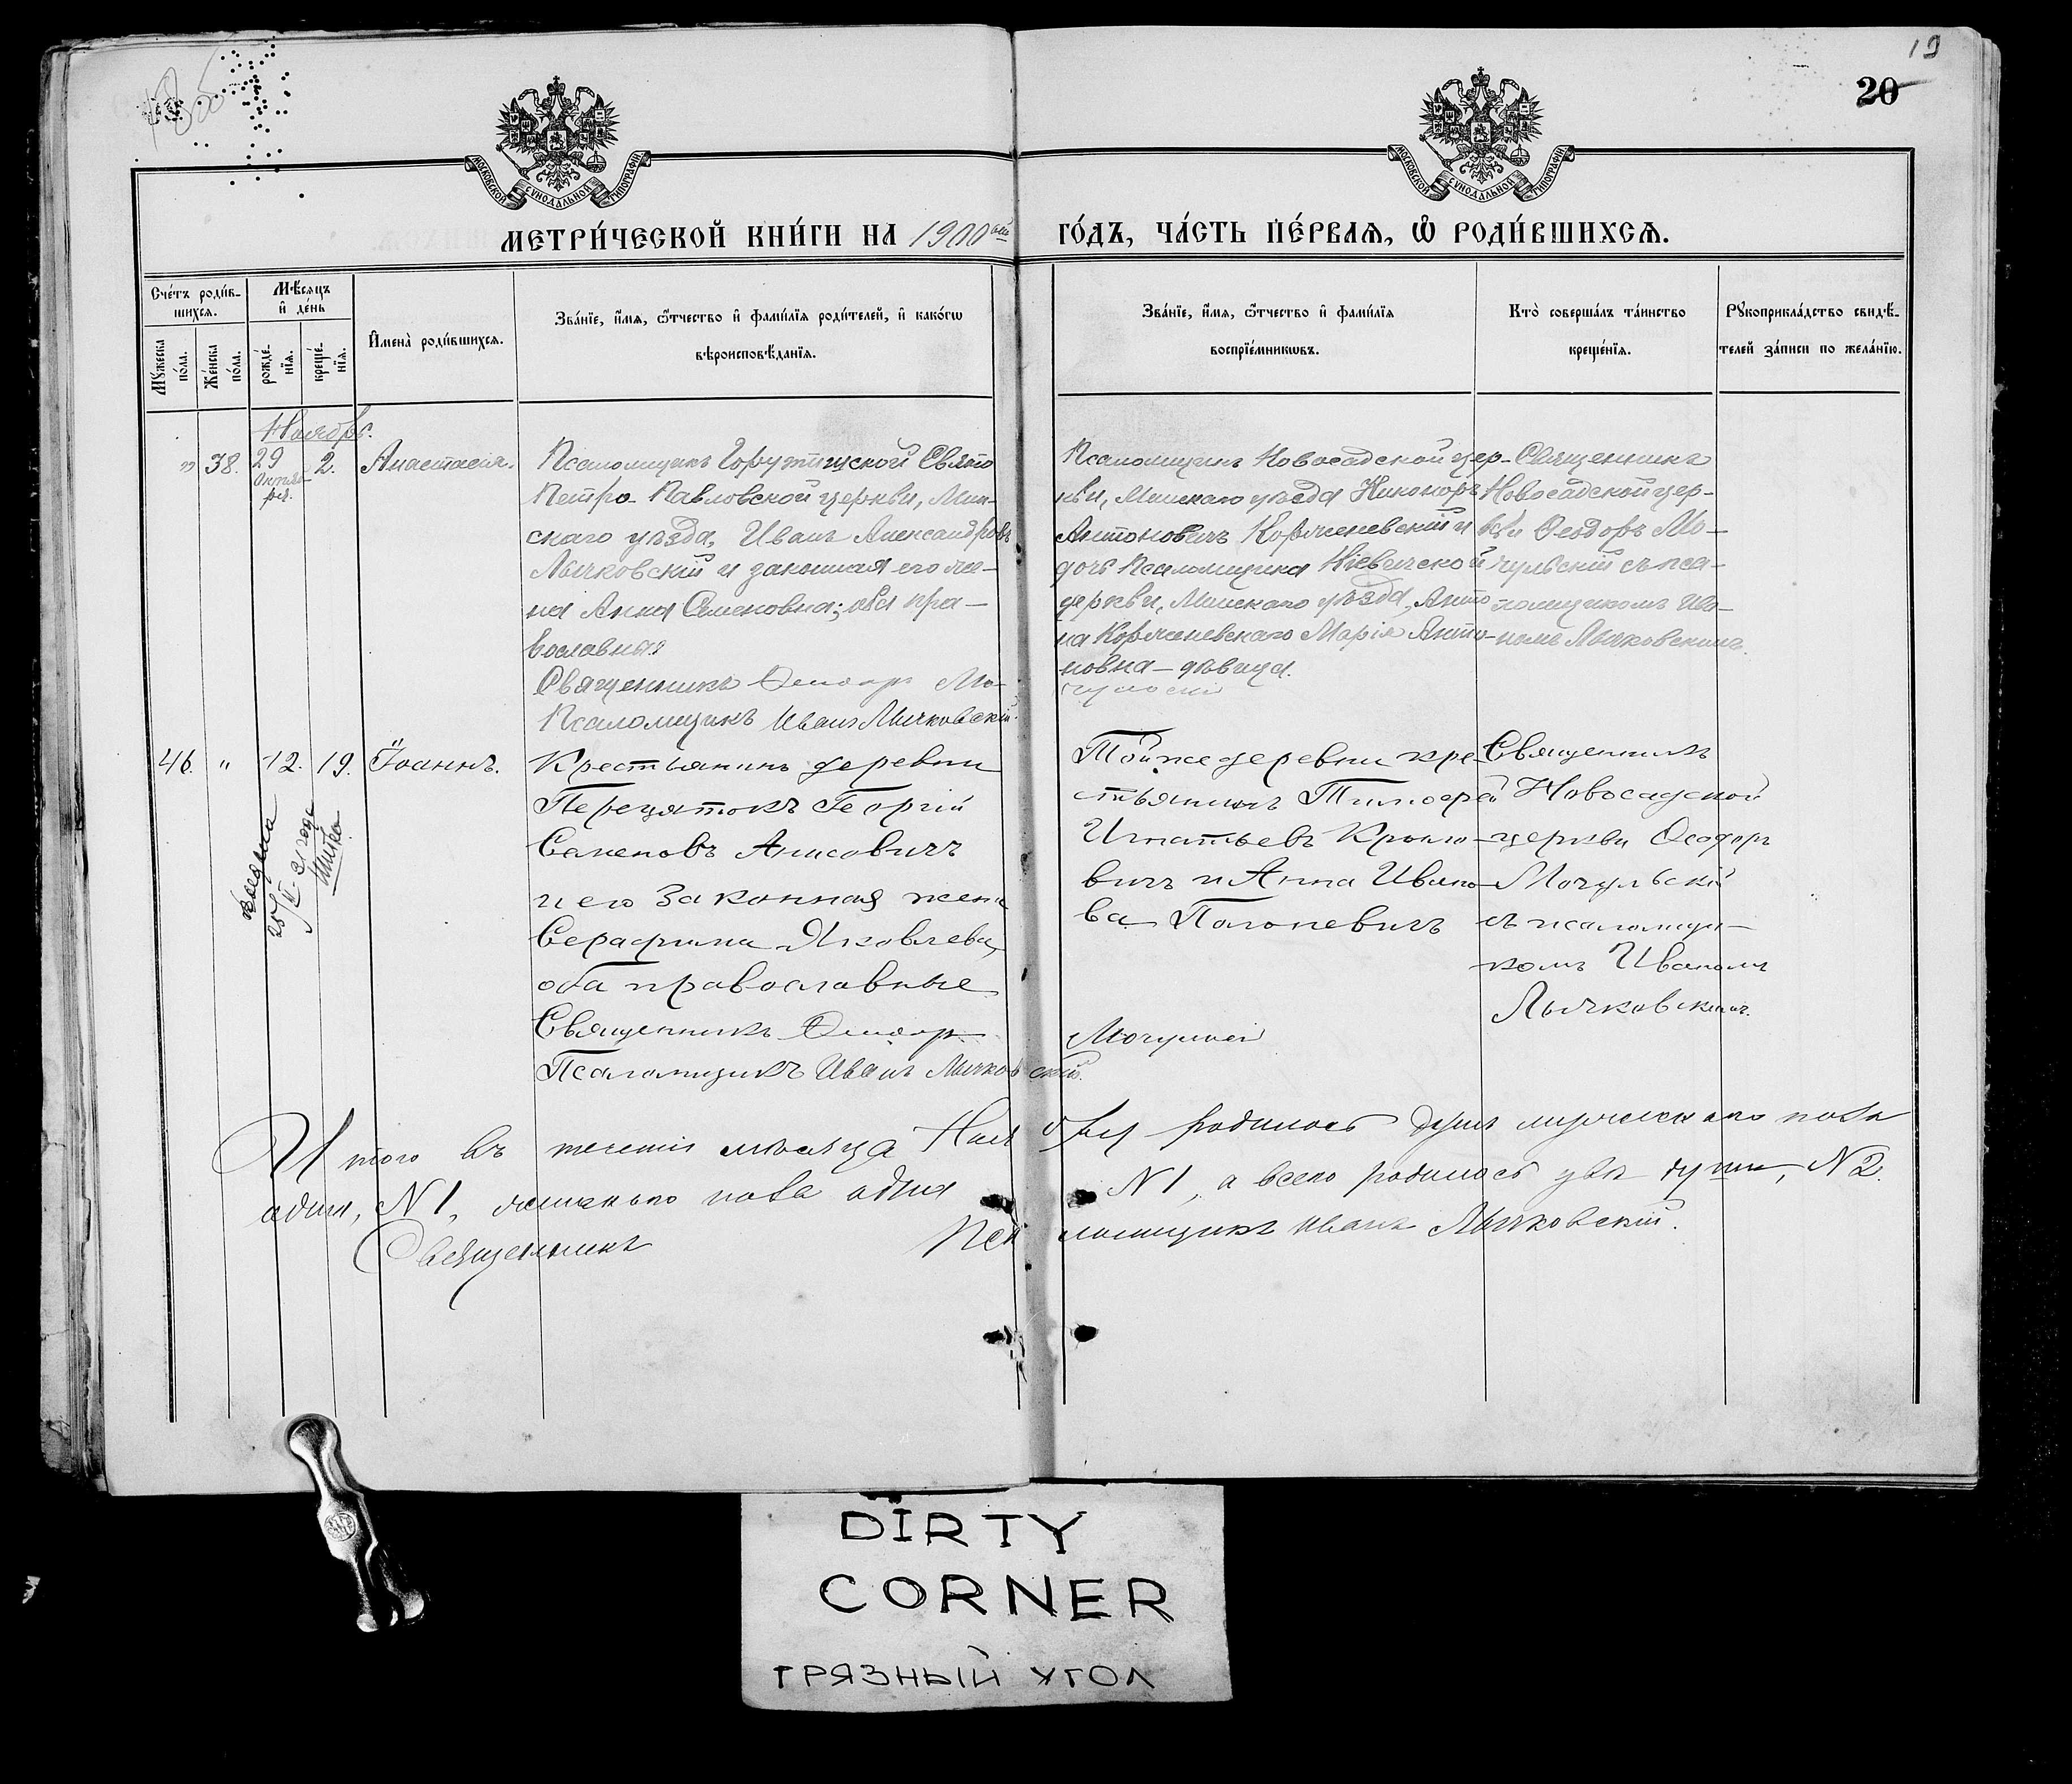 19
20
МОСКОВСКОЙ СѴНОДАЛЬНОЙ ТИПОГРАФІИ
МОСКОВСКОЙ СѴНОДАЛЬНОЙ ТИПОГРАФІИ
МЕТРИ́ЧЕСКОЙ КНИ́ГИ НА 1900ый ГО́ДЪ, ЧА́СТЬ ПЕ́РВАЯ, Ѡ РОДИ́ВШИХСЯ.
Сче́тъ роди́в-
шихся.
Му́жеска по́ла.
Же́нска по́ла.
Мѣ́сяцъ и де́нь
рожде́-
нїя.
креще́-
нїя.
Имена̀ роди́вшихся.
Зва́нїе, и́мя, ѻ́тчество и фами́лїя роди́телей, и како́гѡ
вѣроисповѣ́данїя.
Зва́нїе, и́мя, ѻ́тчество и фами́лїя
воспрїе́мникѡвъ.
Кто̀ соверша́лъ та́инство
креще́нїя.
Рꙋкоприкла́дство свидѣ́-
телей за́писи по жела́нїю.
Ноябрь.
„ 38. 29 Октяб-
ря. 2. Анастасія.
Псаломщикъ Свято
Петро-Павловской церкви, Мин-
скаго уѣзда, Иванъ Александровъ
Лычковскій и законная его же-
на Анна Семеновна; оба пра-
вославные
Священникъ Ѳеодоръ Мо-
чульскій
Псаломщикъ Иванъ Лычковскій.
Псаломщикъ Новосадской цер-
кви, Минскаго уѣзда Никоноръ
Антоновичъ Корженевскій и
дочь Псаломщика Кіевичской
церкви, Минскаго уѣзда, Анто-
на Корженевскаго Марія Анто-
новна – дѣвица.
Священникъ
Новосадской цер-
кви Ѳеодоръ Мо-
чульскій съ пса-
ломщикомъ Ива-
номъ Лычковскимъ.
46. „ 12. 19. Іоаннъ.
Крестьянинъ деревни
Перецятокъ Георгій
Семеновъ Анисовичъ
и его законная жена
Серафима Яковлева,
оба православные
Священникъ Ѳеодоръ Мочульскій
Псаломщикъ Иванъ Лычковскій.
Той же деревни кре-
стьянинъ Тимофей
Игнатьевъ
вичъ и Анна Ивано-
ва
Священникъ
Новосадской
церкви Ѳеодоръ
Мочульскій
съ псаломщи-
комъ Иваномъ
Лычковскимъ.
Выдана
21 года
Итого въ теченіи мѣсяца Ноября родилось душъ мужескаго пола
одна, N 1, женскаго пола одна N 1, а всего родилось двѣ души, N 2.
Священникъ Псаломщикъ Иванъ Лычковскій.
DIRTY
CORNER
ГРЯЗНЫЙ УГОЛ